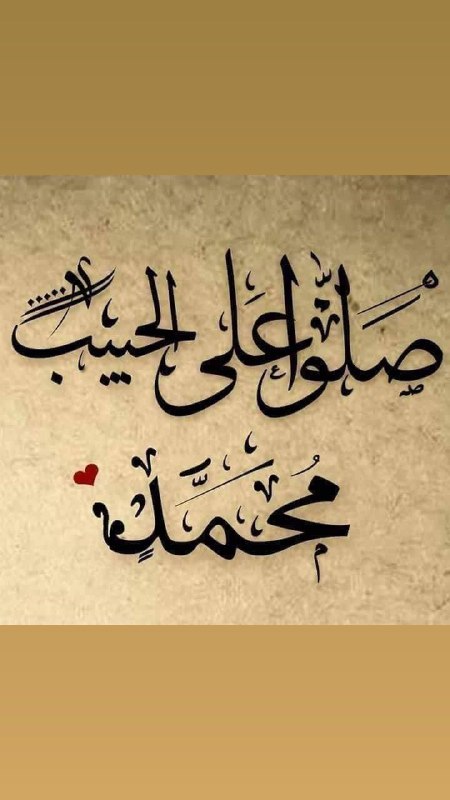 صَلُّوا عَلَى الحبيب
مُحَمَّدٍ